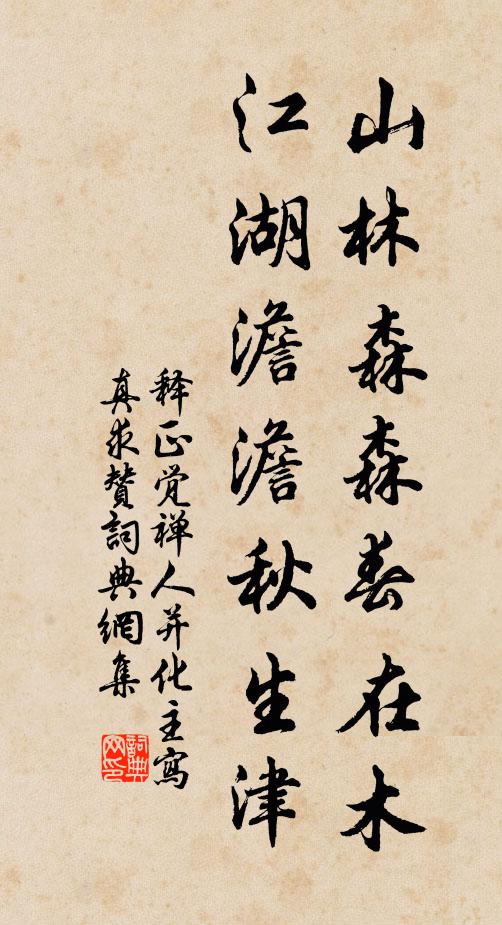 山林森森春在木
江湖澹澹秋生津
释正觉禅人并化主寫
真求赞詞典網集
詞典网印